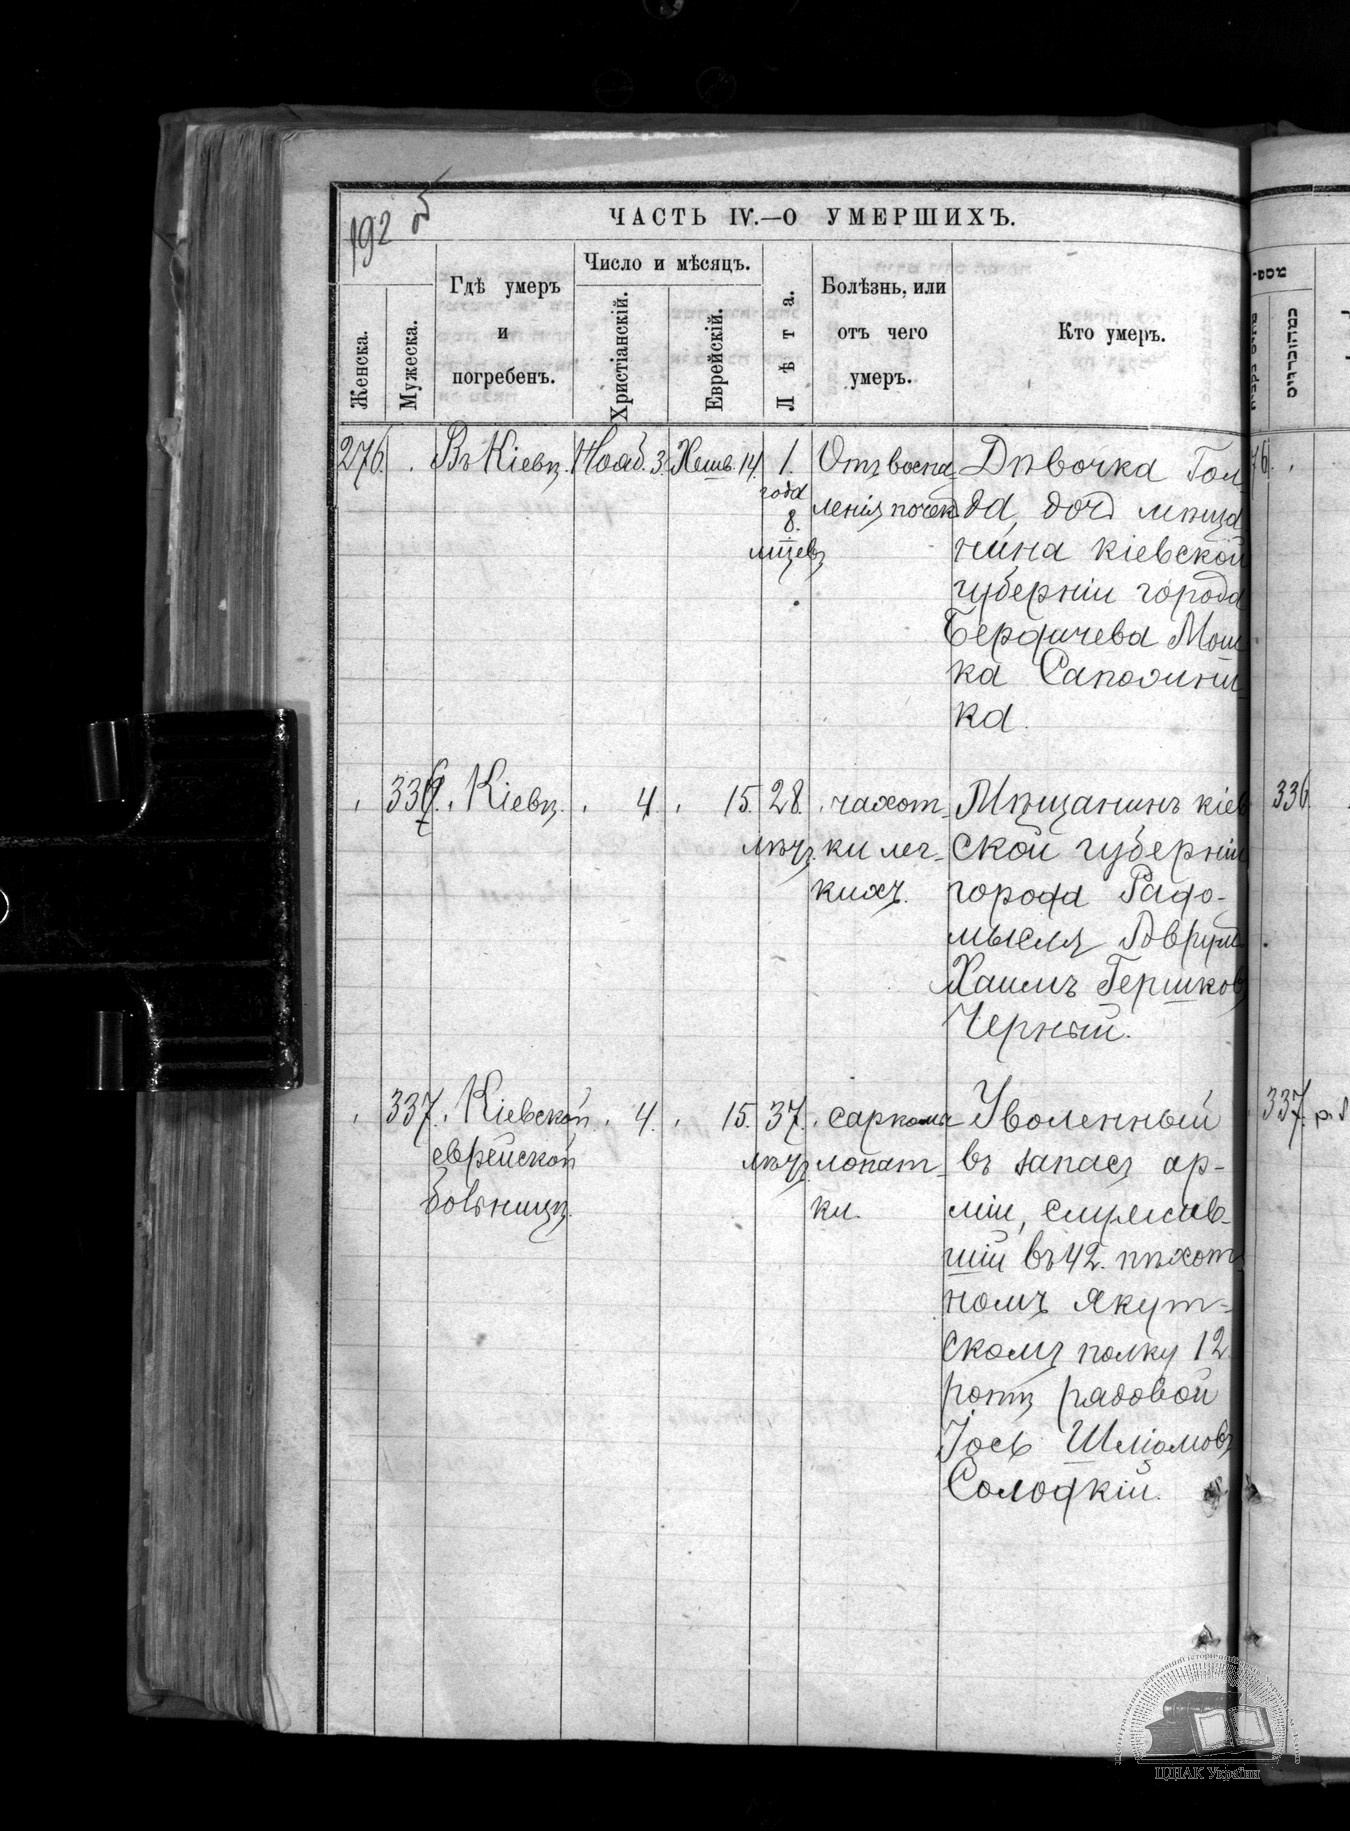 192 об
ЧАСТЬ IV.—О УМЕРШИХЪ.
Женска.
Мужеска.
Гдѣ умеръ
и
погребенъ.
Число и мѣсяцъ.
Христіанскій.
Еврейскій.
Лѣта.
Болѣзнь, или
отъ чего
умеръ.
Кто умеръ.
276.
Въ Кіевѣ
Нояб. 3.
Хешв. 14.
1.
года
8.
мѣцевъ
Отъ воспа-
ленія почек
Дѣвочка Гол-
да, доч мѣща
нина кіевской
губерніи города
Бердичева Мош
ка Сапожни-
ка.
336.
Кіевѣ.
4.
15.
28.
лѣтъ.
чахот-
ки лег-
кихъ.
Мѣщанинъ кіев
ской губерніи
города Радо-
мысля Аврум
Хаимъ Гершковъ
Черный.
337.
Кіевской
еврейской
больницѣ.
4.
15.
37.
лѣтъ
саркомы
лопат-
ки.
Уволенный
въ запасъ ар-
міи, служив-
шій въ 42. пѣхот
номъ Якут-
скомъ полку 12
ротѣ рядовой
Іось Шліомовъ
Солодкій.
336
337.
ЦДІАК України